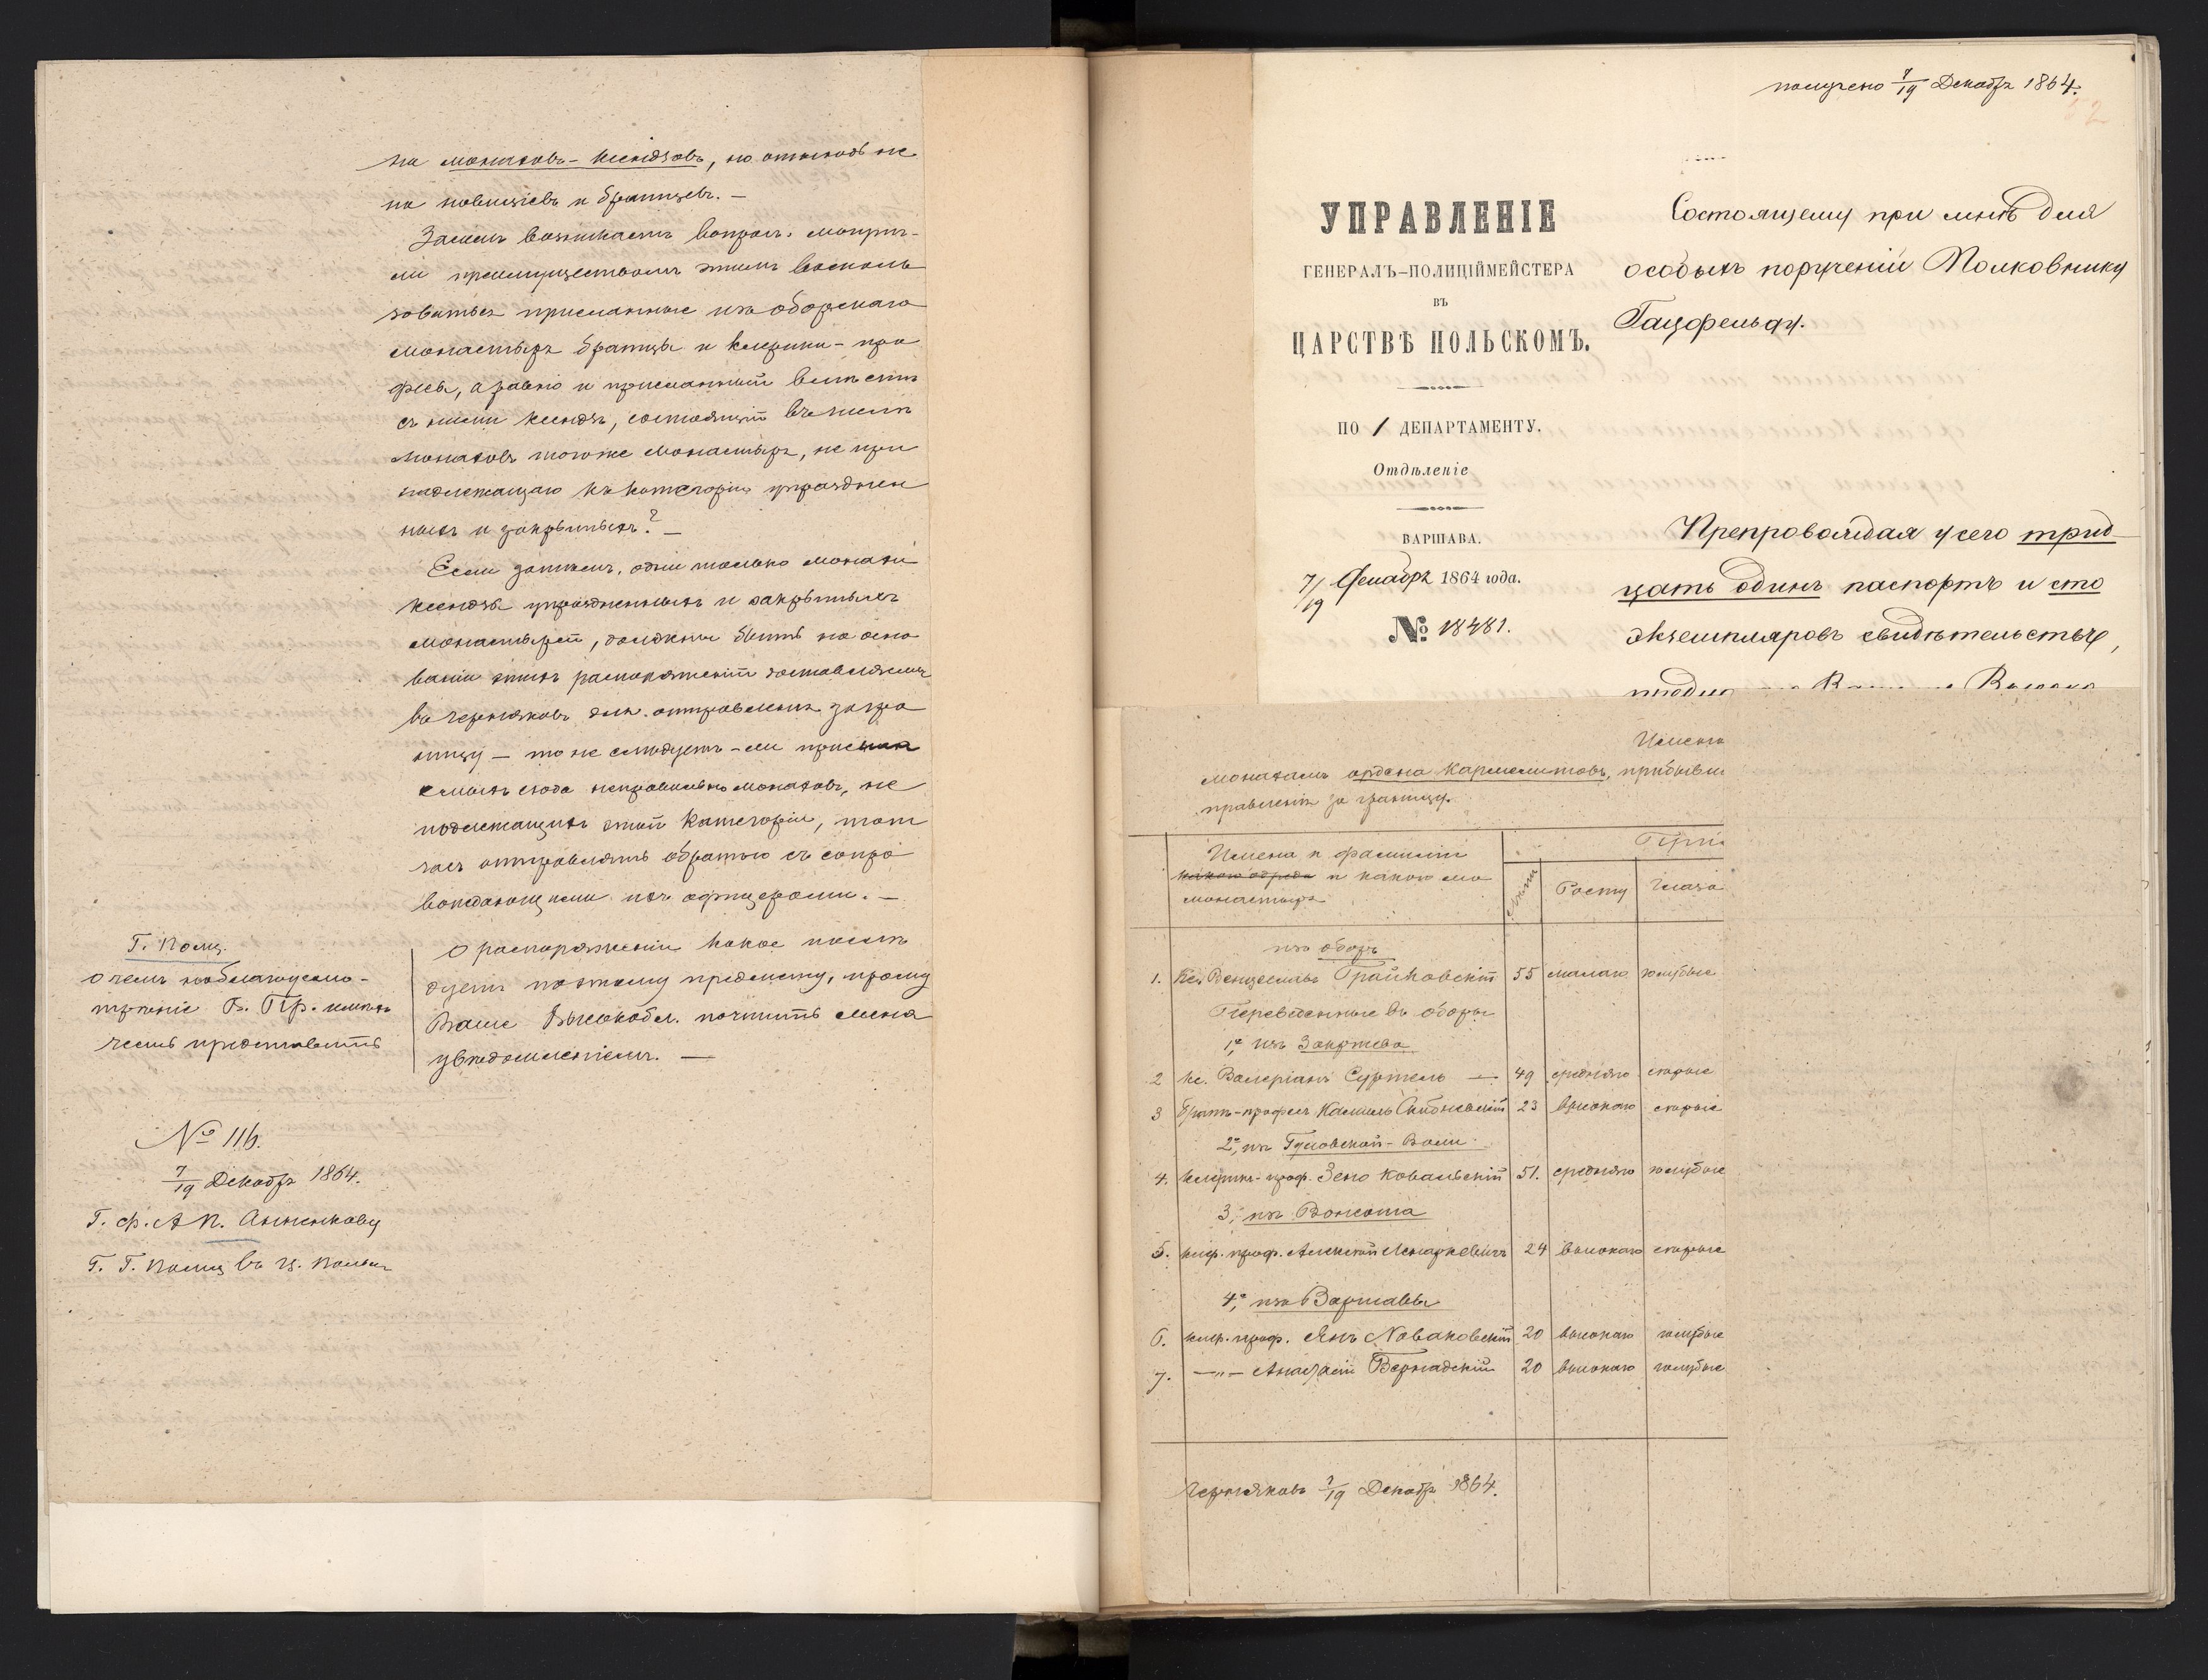 на монаховъ-ксендзовъ, но отнюдь не
на новиціевъ и братцевъ. —
Затемъ возникаетъ вопросъ: могутъ-
ли преимуществомъ этимъ восполь
зоваться присланные изъ оборскаго
монастыря братцы и клерики-про
фесы, а равно и присланный вместе
съ ними ксендзъ, состоящій въ числе
монаховъ тогоже монастыря, не при
надлежащаго къ категоріи упразднен
ныхъ и закрытыхъ? —
Если затемъ, одни только монахи
ксендзы упраздненныхъ и закрытыхъ
монастырей, должны быть на осно
ваніи этихъ распоряженій доставляемы
въ Черняковъ для отправленія загра
ницу — то не следуетъ-ли
сюда неправильно монаховъ, не
подлежащихъ этой категоріи, тот
часъ отправлять обратно съ сопро
вождающими ихъ офицерами. —
О распоряженіи какое после
дуетъ поэтому предмету, прошу
Ваше Высокобл. почтить меня
уведомленіемъ. —
Г. Полиц.
о чемъ на благоусмо-
треніе В. Пр. имею
честь представить
№ 116.
7/19 Декабря 1864.
Г. ф. А П. Анненкову
Г. Г. Полиц въ Ц. Польск
получено 7/19 Декабря 1864.
УПРАВЛЕНІЕ
ГЕНЕРАЛЪ-ПОЛИЦІЙМЕЙСТЕРА
ВЪ
ЦАРСТВѢ ПОЛЬСКОМЪ.
ПО 1 ДЕПАРТАМЕНТУ.
Отдѣленіе
ВАРШАВА.
7/19 Декабря 1864 года.
№ 18481.
Состоящему при мнѣ для
особыхъ порученій Полковнику
Гацфельду.
Препровождая у сего трид
цать одинъ паспортъ и сто
экземпляровъ свидѣтельствъ,
Имена
монахамъ ордена Кармелитовъ, прибывш
правленія за границу.
Имена и фамиліи
какого обряда и какого мо
монастыря
Лета
Росту
Глаза
изъ оборъ
1. Кс. Венцеславъ Грайковскій 55 малаго голубые
Переведенные въ оборы
1е, изъ Закржева
2 кс. Валеріанъ Суртель — 49 средняго серые
3 братъ-професъ Камилъ 23 высокаго серые
2е, изъ Гуловской-Воли
4. клерикъ-проф. Зено Ковальскій 51. средняго голубые
3, изъ Вонсоша
5. клер. проф. 24 высокаго серые
4е, изъ Варшавы
6. клер. проф. Янъ Новаковскій 20 высокаго голубые
7. —"— Анастасій Бернадскій 20 высокаго голубые
Черняковъ 7/19 Декабря 1864.